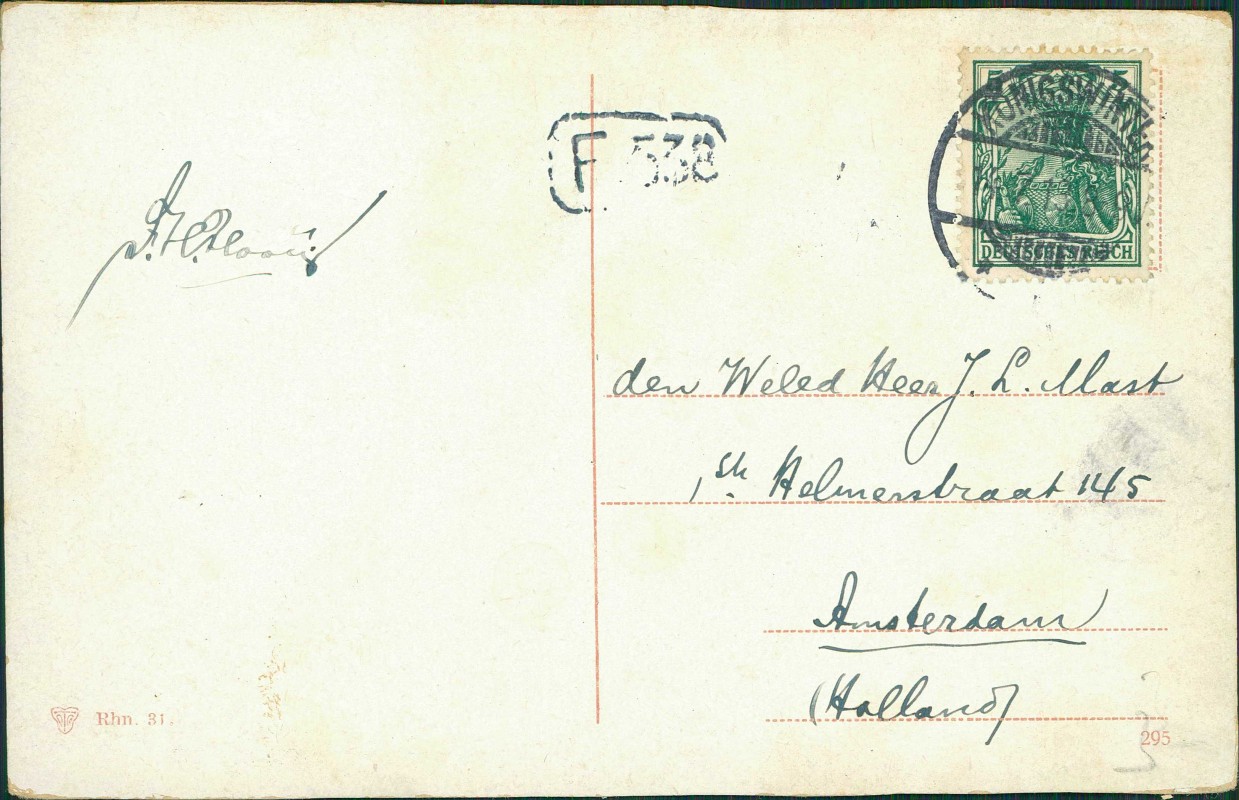 F 538
5 5
KÖNIGSWINTER
DEUTSCHES REICH
den Weled Heer J. L. Mast
1ste Helmersstraat 145
Amsterdam
(Holland)
Rhn. 31.
295